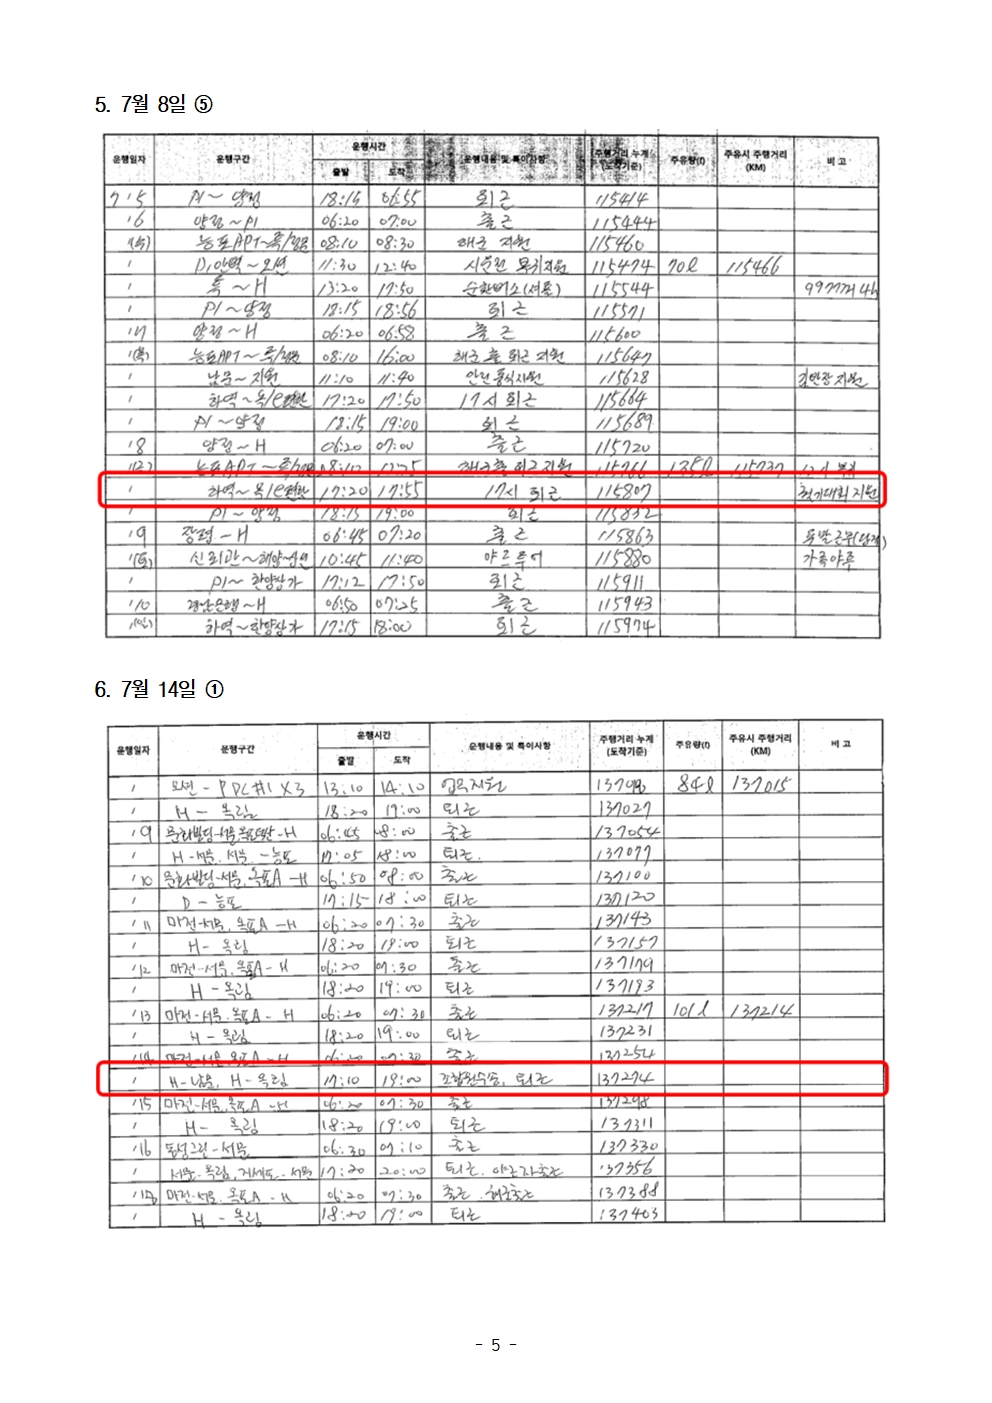 5. 7월 8일 ⑤
운행일자 운행구간 운행시간 운행내용 및 특이사항 주행거리 누계 (도착기준) 주유량(ℓ) 주유시 주행거리 (KM) 비 고
출발 도착
7 '5 P1~양정 18:15 06:55 퇴근 115414
'6 양정~P1 06:20 07:00 출근 115444
능포APT~ 08:10 08:30 지원 115460
' 11:30 12:40 115474 70ℓ 115466
' 톡~H 13:20 17:50 순환버스(셔틀) 115544
' P1~양정 18:15 18:56 퇴근 115571
'7 양정~H 06:20 06:58 출근 115600
능포APT~ 08:10 16:00 퇴근 지원 115647
' 남문~지원 11:10 11:40 115628
' 하역~옥/ 17:20 17:50 17시 퇴근 115664
' P1~양정 18:15 19:00 퇴근 115689
'8 양정~H 06:20 07:00 출근 115720
능포APT~ 115766 135ℓ 115737
' 하역~옥/ 17:20 17:55 17시 퇴근 115807 지원
' P1~양정 18:15 19:00 퇴근 115832
'9 장평~H 06:45 07:20 출근 115863
'(토) 신뢰관~ 10:45 11:40 야드투어 115880
' P1~한양상가 17:12 17:50 퇴근 115911
'10 경남은행~H 06:50 07:25 출근 115943
'(일) 하역~한양상가 17:15 18:00 퇴근 115974
6. 7월 14일 ①
운행일자 운행구간 운행시간 운행내용 및 특이사항 주행거리 누계 (도착기준) 주유량(ℓ) 주유시 주행거리 (KM) 비 고
출발 도착
' 오션 - PDC#1 X3 13:10 14:10 업무지원 84ℓ 137015
' H - 옥림 18:20 19:00 퇴근 137027
'9 문화빌딩-서문, -H 06:45 08:00 출근 137054
' H-서문, 서문, -능포 17:05 18:00 퇴근. 137077
'10 문화빌딩-서문, 옥포A -H 06:50 08:00 출근 137100
' D - 능포 17:15 18:00 퇴근 137120
'11 마전-서문, 옥포A -H 06:20 07:30 출근 137143
' H- 옥림 18:20 19:00 퇴근 137157
'12 마전-서문, 옥포A- H 06:20 07:30 출근 137179
' H - 옥림 18:20 19:00 퇴근 137193
'13 마전-서문, 옥포A - H 06:20 07:30 출근 137217 101ℓ 137214
' H - 옥림 18:20 19:00 퇴근 137231
'14 마전-서문, 옥포A -H 06:20 07:30 출근 137254
' H-남문, H-옥림 17:10 19:00 조합원수송, 퇴근 137274
'15 마전-서문, 옥포A -H 06:20 07:30 출근 137298
' H- 옥림 18:20 19:00 퇴근 137311
'16 동성그린-서문 06:30 07:10 출근 137330
' 서문-옥림, 지세포-서문 17:20 20:00 퇴근, 야근자출근 137356
마전-서문, 옥포A - H 06:20 07:30 출근, 137388
' H - 옥림 18:20 19:00 퇴근 137403
- 5 -